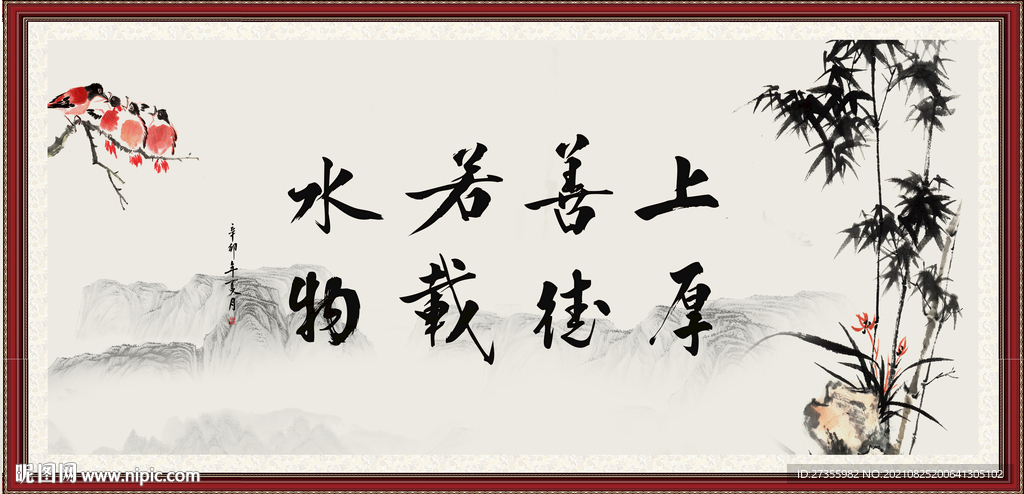 上善若水
厚德載物
辛卯年夏月
昵图网 www.nipic.com
ID:27355982 NO:20210825200641305102